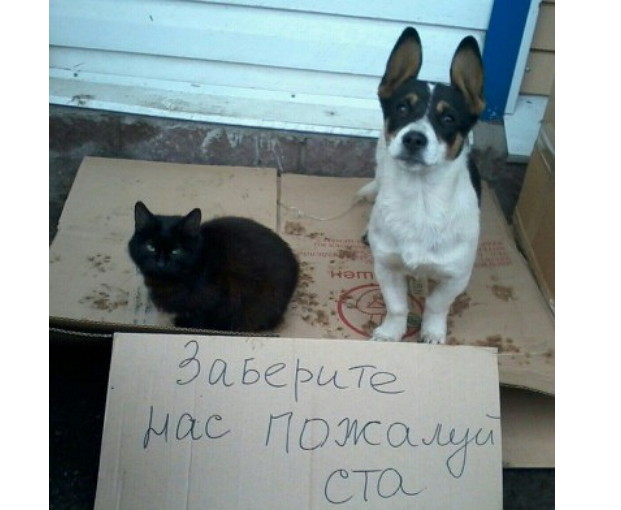 Заберите
нас пожалуй
ста